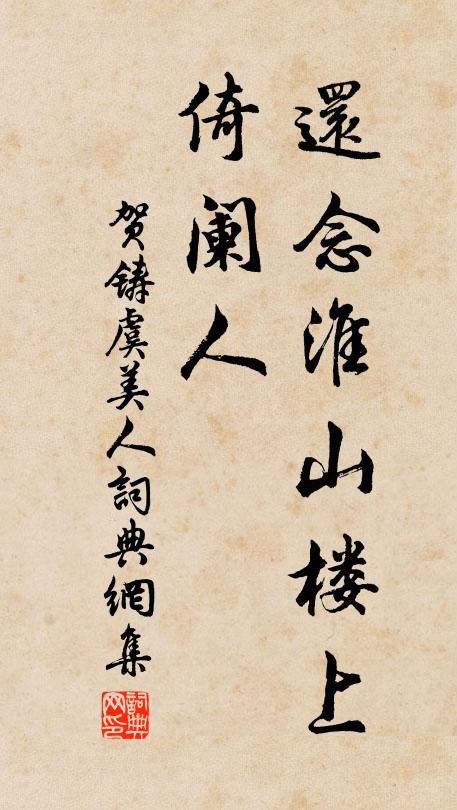 還念淮山楼上
倚阑人
贺鑄虞美人詞典網集
詞典
网印